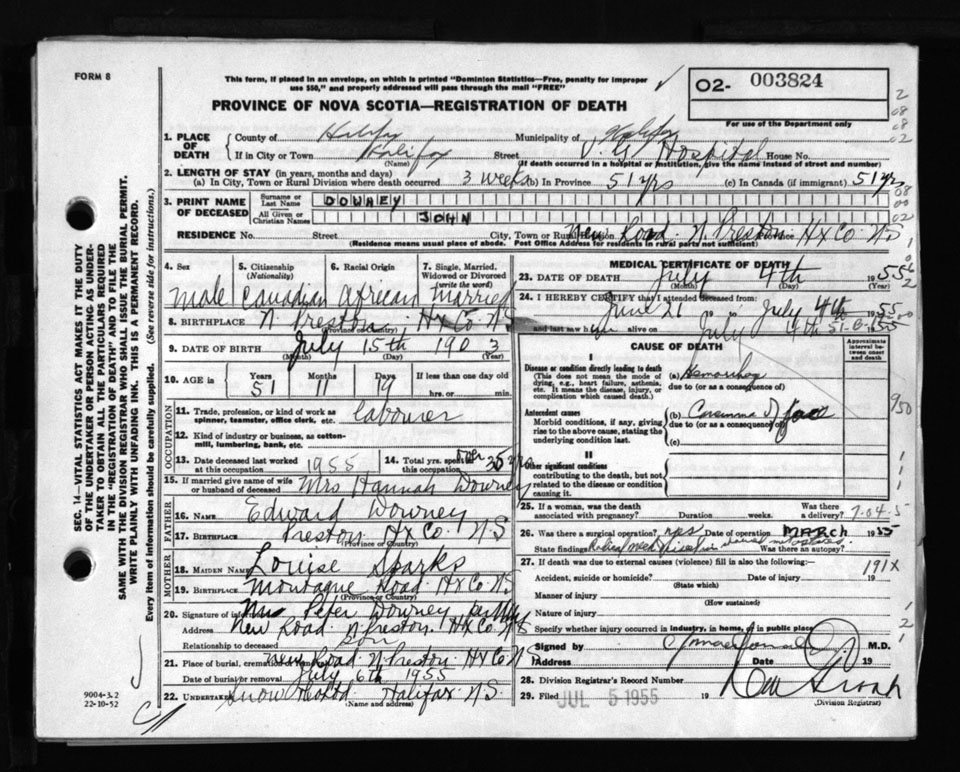 FORM 8
This form, if placed in an envelope, on which is printed "Dominion Statistics—Free, penalty for improper
use $50," and properly addressed will pass through the mail "FREE"
02- 003824
For use of the Department only
PROVINCE OF NOVA SCOTIA—REGISTRATION OF DEATH
1. PLACE OF DEATH County of Halifax Municipality of Halifax
If in City or Town Halifax Street V. G. Hospital House No.
(Name) (If death occurred in a hospital or institution, give the name instead of street and number)
2. LENGTH OF STAY (in years, months and days)
(a) In City, Town or Rural Division where death occurred 3 weeks (b) In Province 51 yrs (c) In Canada (if immigrant) 51 yrs
3. PRINT NAME OF DECEASED Surname or Last Name DOWNEY
All Given or Christian Names JOHN
RESIDENCE No. Street City, Town or Rural New Road N. Preston Hx Co. N.S
(Residence means usual place of abode. Post Office Address for residents in rural parts not sufficient)
4. Sex Male
5. Citizenship (Nationality) Canadian
6. Racial Origin African
7. Single, Married, Widowed or Divorced (write the word) Married
8. BIRTHPLACE N Preston Hx Co. N.S
(Province or Country)
9. DATE OF BIRTH July 15th 1903
(Month) (Day) (Year)
10. AGE in Years 51 Months 11 Days 19 If less than one day old hrs. or min.
OCCUPATION
11. Trade, profession, or kind of work as spinner, teamster, office clerk, etc. labourer
12. Kind of industry or business, as cotton-mill, lumbering, bank, etc.
13. Date deceased last worked at this occupation 1955
14. Total yrs. spent in this occupation over 35 yrs
15. If married give name of wife or husband of deceased Mrs Hannah Downey
FATHER
16. NAME Edward Downey
17. BIRTHPLACE Preston Hx Co. N.S
(Province or Country)
MOTHER
18. MAIDEN NAME Louise Sparks
19. BIRTHPLACE Montague Road Hx Co. N.S
(Province or Country)
20. Signature of informant Peter Downey
Address New Road N. Preston. Hx Co. N.S
Relationship to deceased Son
21. Place of burial, cremation New Road N. Preston Hx Co. N.S
Date of burial or removal July 6th 1955
22. Undertaker Snow Halifax N.S.
(Name and address)
MEDICAL CERTIFICATE OF DEATH
23. DATE OF DEATH July 4th 1955
(Month) (Day)
24. I HEREBY CERTIFY that I attended deceased from:
June 21 to July 4th 1955
and last saw h alive on July 4th
CAUSE OF DEATH
Approximate interval between onset and death
I
Disease or condition directly leading to death
(This does not mean the mode of dying, e.g., heart failure, asthenia, etc. It means the disease, injury, or complication which caused death.)
(a) Hemorrhage
due to (or as a consequence of)
Antecedent causes
Morbid conditions, if any, giving rise to the above cause, stating the underlying condition last.
(b) Carcinoma of
due to (or as a consequence of)
(c)
II
Other significant conditions
contributing to the death, but not related to the disease or condition causing it.
25. If a woman, was the death associated with pregnancy? Duration weeks. Was there a delivery?
26. Was there a surgical operation? yes Date of operation MARCH 1955
State findings Radical neck dissection Was there an autopsy?
27. If death was due to external causes (violence) fill in also the following:
191X
Accident, suicide or homicide? Date of injury 19
(State which)
Manner of injury
(How sustained)
Nature of injury
Specify whether injury occurred in industry, in home, or in public place
Signed by M.D.
Address Date 19
28. Division Registrar's Record Number
29. Filed JUL 5 1955 19
(Division Registrar)
SEC. 14—VITAL STATISTICS ACT MAKES IT THE DUTY
OF THE UNDERTAKER OR PERSON ACTING AS UNDERTAKER TO OBTAIN ALL THE PARTICULARS REQUIRED
IN THE "REGISTRATION OF DEATH" AND TO FILE THE
SAME WITH THE DIVISION REGISTRAR WHO SHALL ISSUE THE BURIAL PERMIT.
WRITE PLAINLY WITH UNFADING INK. THIS IS A PERMANENT RECORD.
Every item of information should be carefully supplied. (See reverse side for instructions.)
9004-3.2
22-10-52